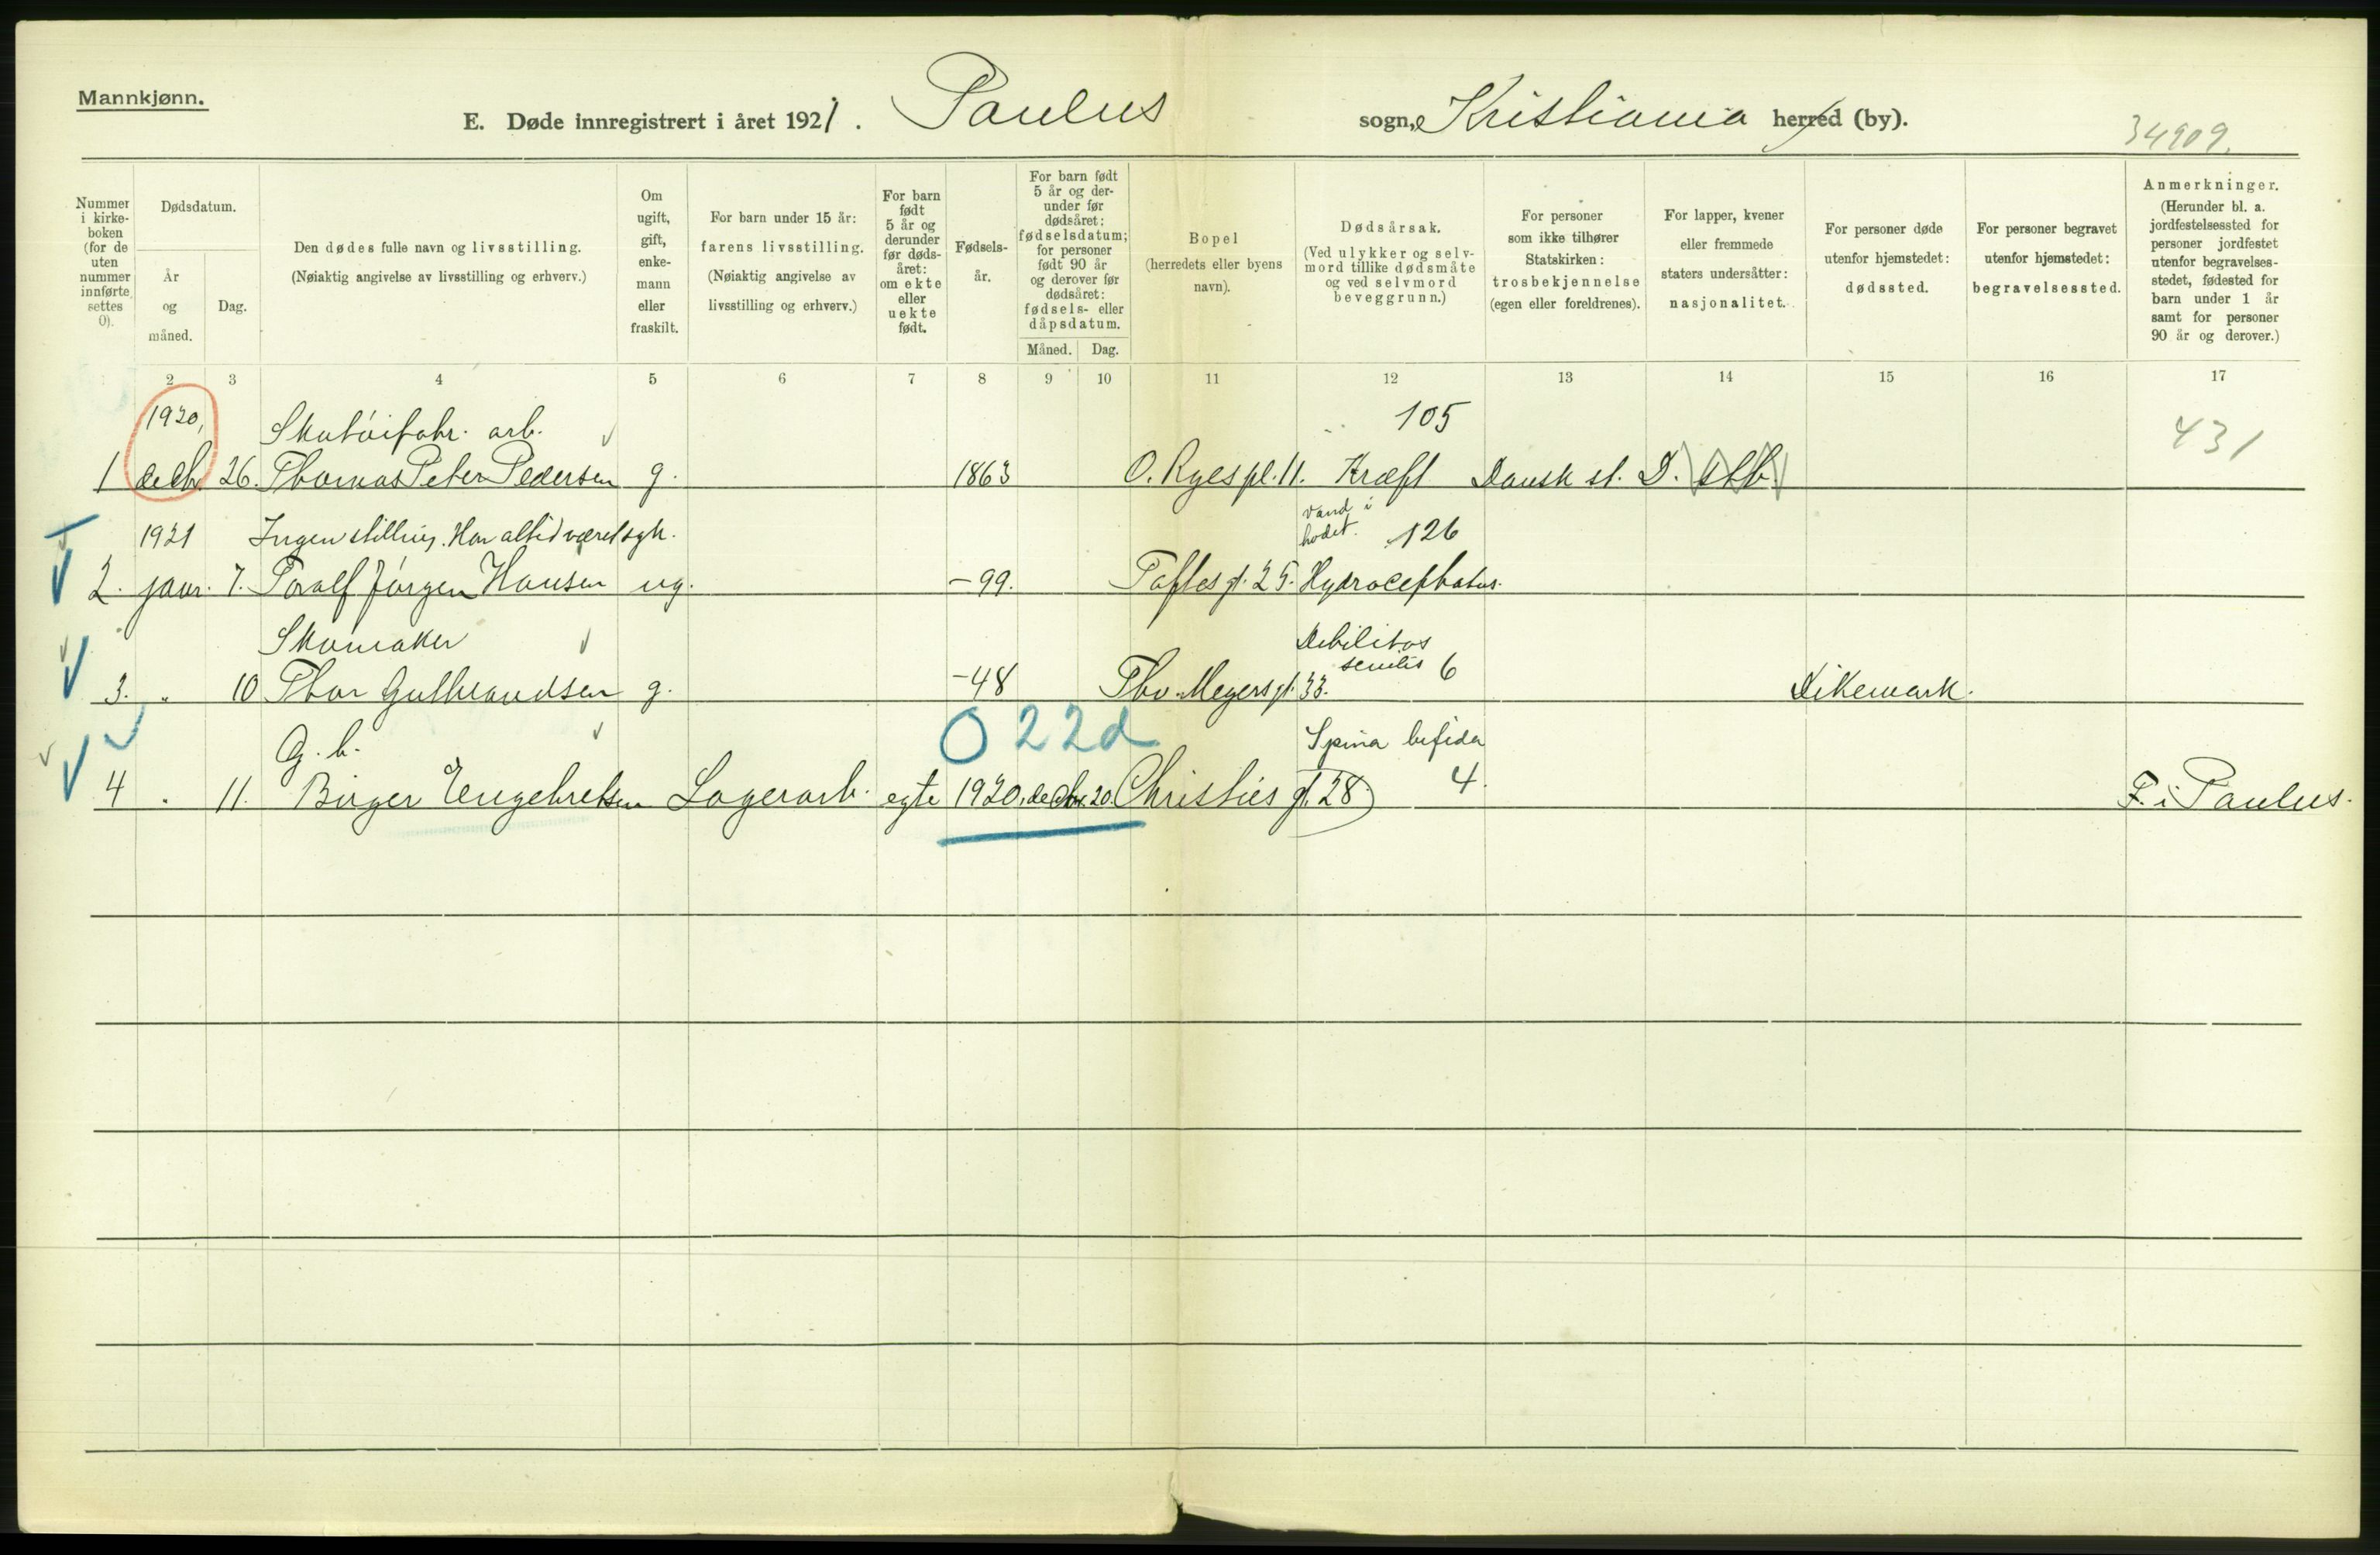 Mannkjønn.
E. Døde innregistrert i året 1921. Paulus sogn, Kristiania herred (by).
34909.
Nummer i kirkeboken (for de uten nummer innførte settes 0).
Dødsdatum.
År og måned.
Dag.
Den dødes fulle navn og livsstilling.
(Nøiaktig angivelse av livsstilling og erhverv.)
Om ugift, gift, enkemann eller fraskilt.
For barn under 15 år: farens livsstilling.
(Nøiaktig angivelse av livsstilling og erhverv.)
For barn født 5 år og derunder før dødsåret: om ekte eller uekte født.
Fødselsår.
For barn født 5 år og derunder før dødsåret: fødselsdatum; for personer født 90 år og derover før dødsåret: fødsels- eller dåpsdatum.
Måned. Dag.
Bopel
(herredets eller byens navn).
Dødsårsak.
(Ved ulykker og selvmord tillike dødsmåte og ved selvmord beveggrunn.)
For personer som ikke tilhører Statskirken: trosbekjennelse (egen eller foreldrenes).
For lapper, kvener eller fremmede staters undersåtter: nasjonalitet.
For personer døde utenfor hjemstedet: dødssted.
For personer begravet utenfor hjemstedet: begravelsessted.
Anmerkninger.
(Herunder bl. a. jordfestelsessted for personer jordfestet utenfor begravelsesstedet, fødested for barn under 1 år samt for personer 90 år og derover.)
2 3 4 5 6 7 8 9 10 11 12 13 14 15 16 17
1920, Skotøifabr. arb. 105 431
1 decbr. 26. Thomas Peter Pedersen g. 1863 O. Ryes pl. 11. Kræft Dansk st. D.
1921 Ingen stilling. Har altid været syk. vand i hodet. 126
2. janr. 7. Toralf Jörgen Hansen ug. -99. Toftes gt. 25. Hydrocephalus.
Skomaker Debilitas senilis 6
3. " 10 Thor Gulbrandsen g. -48 Thv. Meyers gt. 33. Dikemark.
G. b. 0 22d Spina bifida
4 " 11. Birger Engebretsen Lagerarb. egte 1920. decbr. 20. Christies gt. 28 4. F. i Paulus.